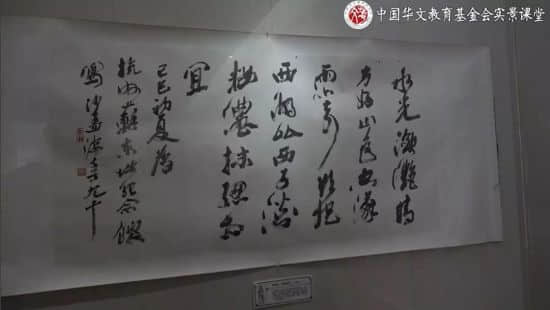 中国华文教育基金会实景课堂
水光瀲灧晴
方好山色空濛
雨亦奇欲把
西湖比西子淡
粧濃抹總相
宜
己巳初夏為
杭州蘇東坡紀念館
寫沙孟海年九十